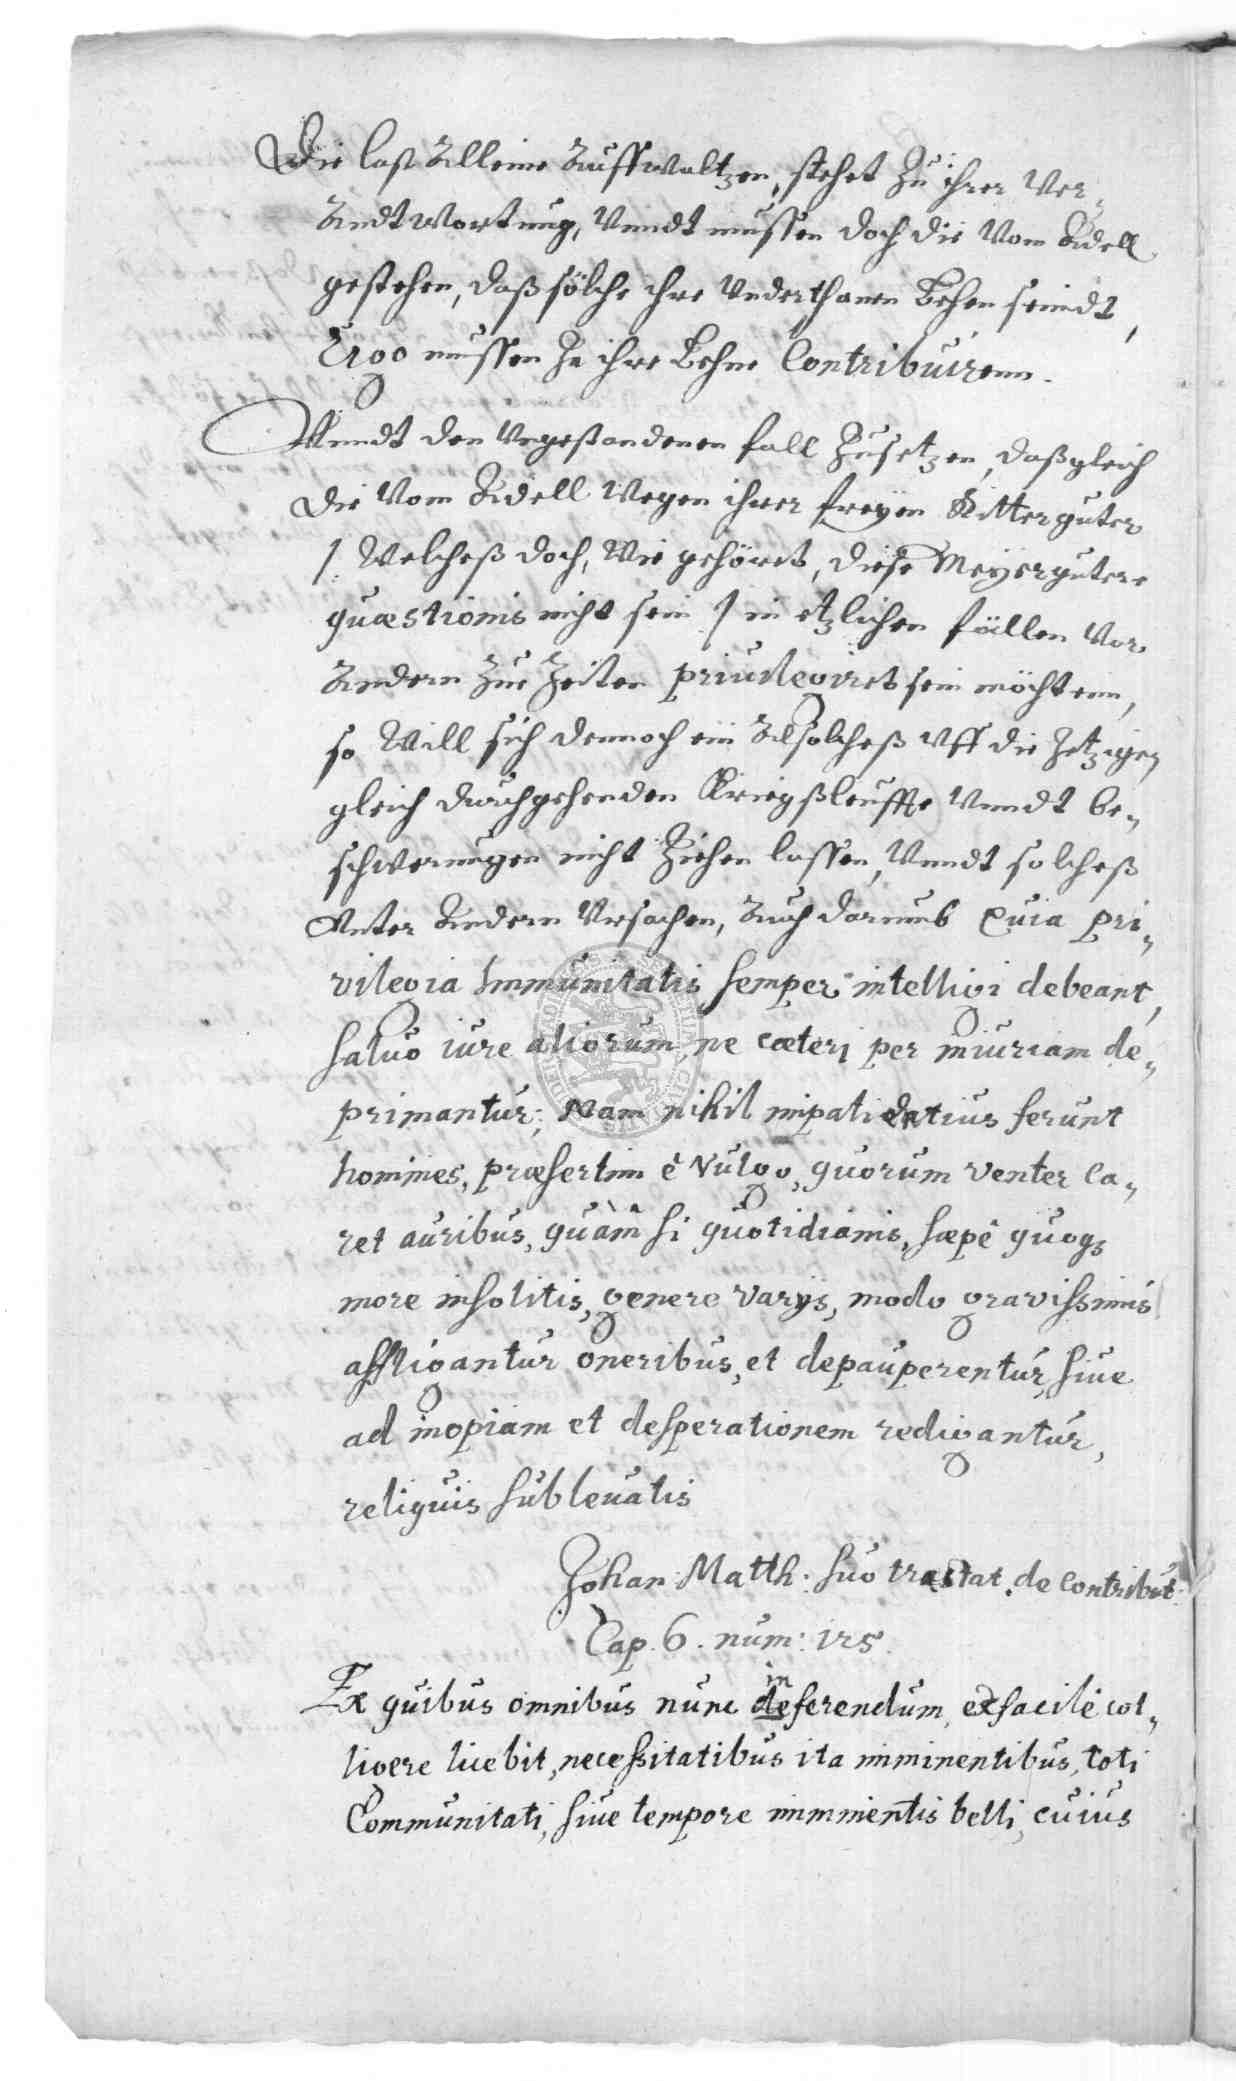 Die last Alleine Auffwaltzen, stehet Zu ihrer Ver-
Andtwortung, Vnndt mussen doch die Vom Adell
gestehen, daß sölche ihre Vnderthanen Lehen seindt,
Ergo mussen Ja ihre Lehne Contribuirenn.
Vnndt den Vngestandenen fall Zusetzen, daßgleich
die Vom Adell Wegen ihrer freyen Ritterguter
/: Welcheß doch, Wie gehöret, diese Meyergutere
quæstionis nicht sein / in etzlichen fällen Vor
Andern Zue Zeiten priuilegiret sein möchtenn,
so Will sich dennoch ein Alsolcheß Vff die Jetzige
gleich durchgehenden Kriegßleuffte Vnndt be-
schwerungen nicht Ziehen lassen, Vnndt solcheß
Vnter Andern Vrsachen, Auch darumb Quia pri-
vilegia Immunitatis semper intelligi debeant,
saluo iure aliorum, ne cæteri per iniuriam de-
primantur; Nam nihil impatientius ferunt
homines, præsertim è Vulgo, quorum venter ca-
ret auribus, quàm si quotidianis, sæpè quoqs
more insolitis, genere varijs, modo gravissimis
affligantur oneribus, et depauperentur, siue
ad inopiam et desperationem redigantur,
reliquis subleuatis
Johan: Matth: suo tractat. de Contribut:
Cap. 6. num: 125.
Ex quibus omnibus nunc inferendum, et facilè col-
ligere licebit, necessitatibus ita imminentibus toti
Communitati, siue tempore imminentis belli, cuius